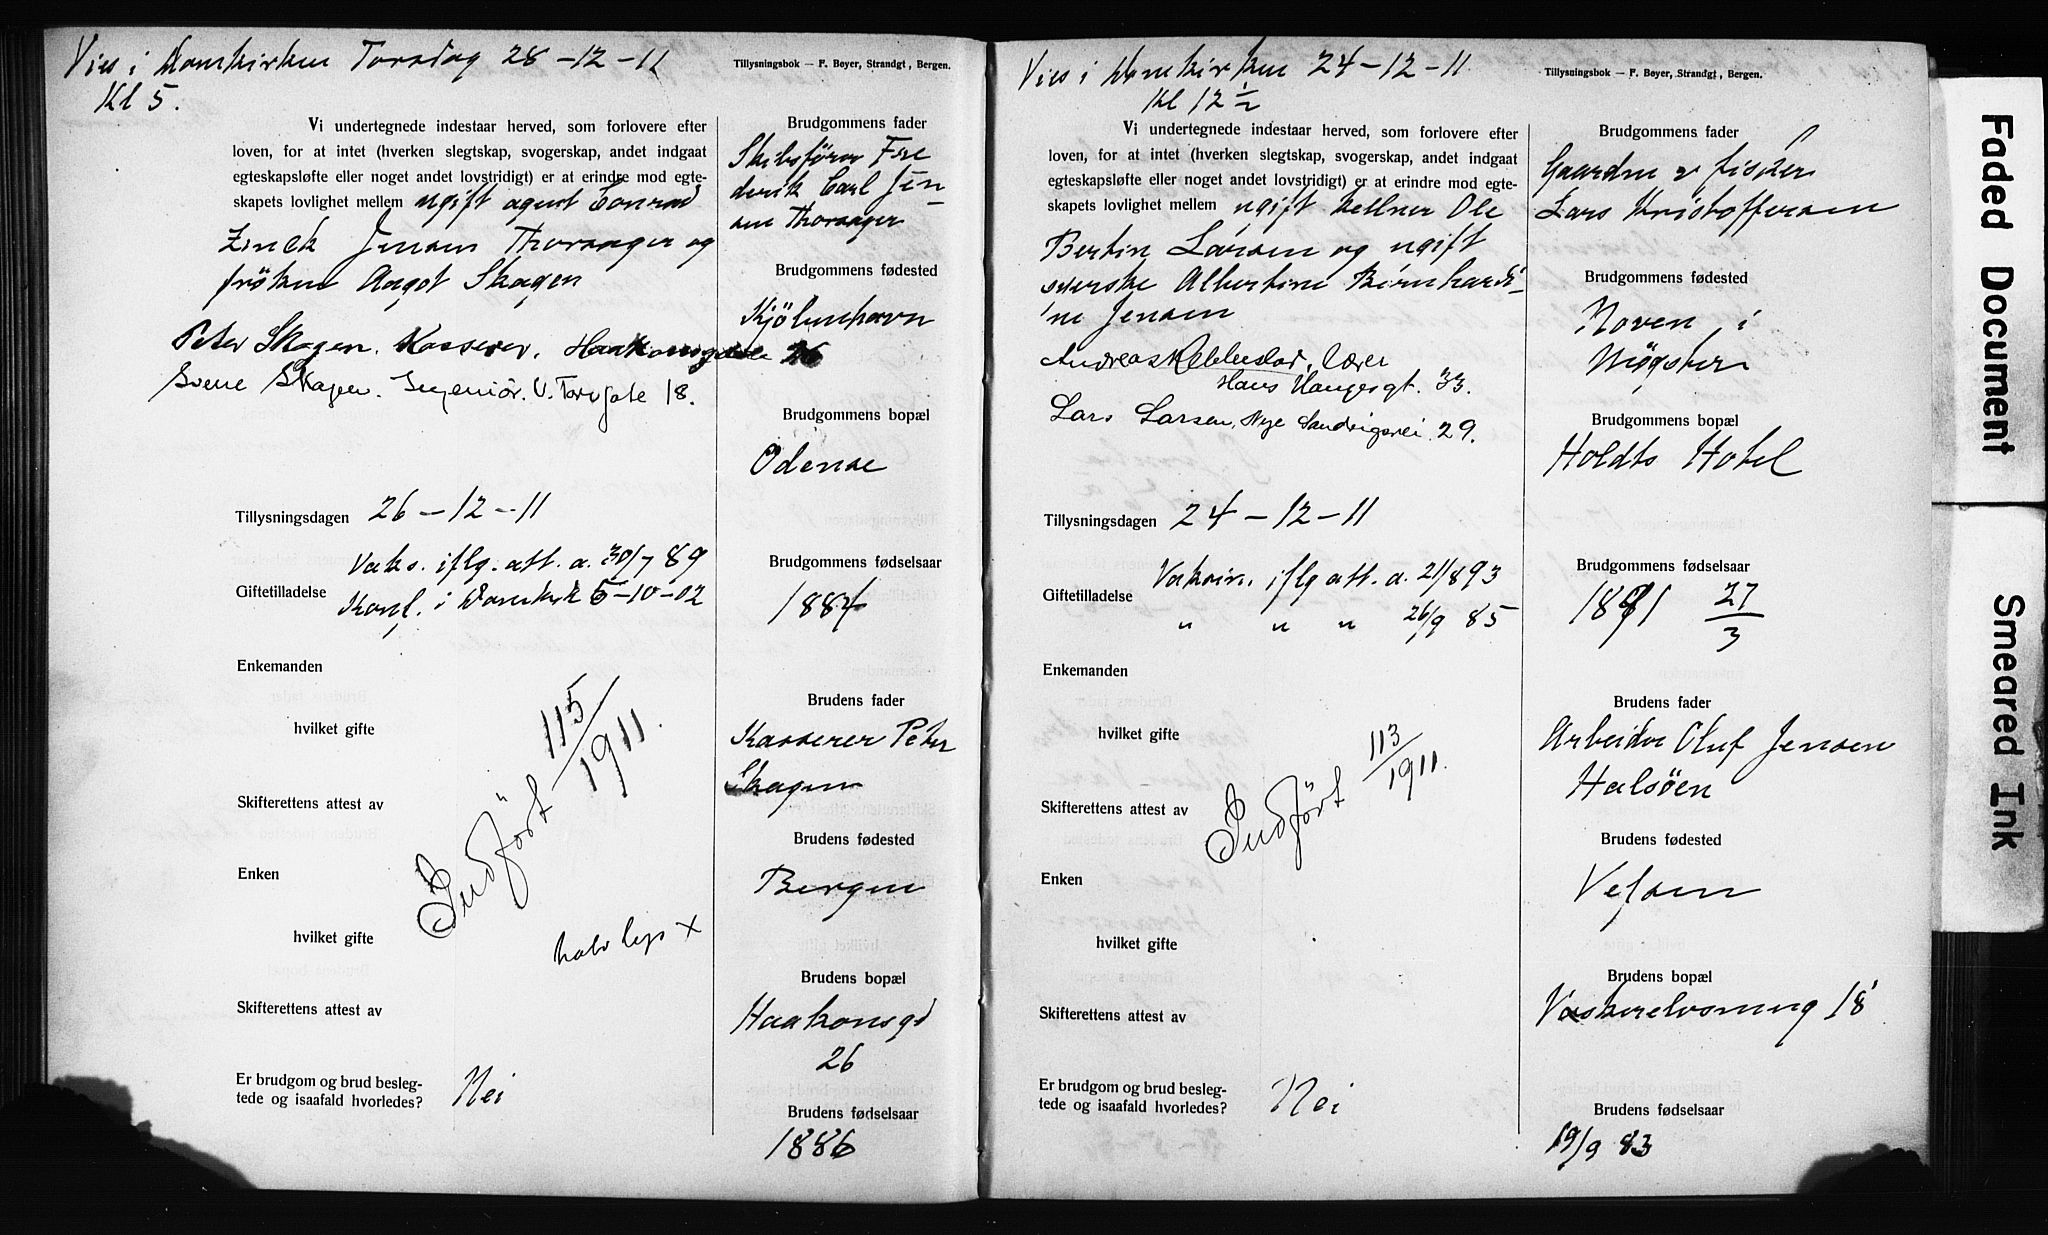 Vies i Domkirken Torsdag 28-12-11
Kl 5.
Tillysningsbok — F. Beyer, Strandgt, Bergen.
Vi undertegnede indestaar herved, som forlovere efter
loven, for at intet (hverken slegtskap, svogerskap, andet indgaat
egteskapsløfte eller noget andet lovstridigt) er at erindre mod egte-
skapets lovlighet mellem ugift agent Conrad
Zinck Jensen Thorsager og
frøken Aagot Skagen
Peter Skagen. Kasserer. Haakonsgaten 26
Sverre Skagen. Ingeniör. V. Torvgate 18.
Tillysningsdagen 26-12-11
Vaks. iflg. att. a. 30/7 89
Giftetilladelse Konf. i Domkirk 5-10-02
Enkemanden
hvilket gifte
Skifterettens attest av
Indført 115/1911.
Enken
hvilket gifte
halv lys x
Skifterettens attest av
Er brudgom og brud besleg-
tede og isaafald hvorledes? Nei
Brudgommens fader
Skibsförer Fre
derik Carl Jen
sen Thorsager
Brudgommens fødested
Kjöbenhavn
Brudgommens bopæl
Odense
Brudgommens fødselsaar
1884
Brudens fader
Kasserer Peter
Skagen
Brudens fødested
Bergen
Brudens bopæl
Haakonsgd
26
Brudens fødselsaar
1886
Vies i Domkirken 24-12-11
Kl 12 ½
Tillysningsbok — F. Beyer, Strandgt, Bergen.
Vi undertegnede indestaar herved, som forlovere efter
loven, for at intet (hverken slegtskap, svogerskap, andet indgaat
egteskapsløfte eller noget andet lovstridigt) er at erindre mod egte-
skapets lovlighet mellem ugift kellner Ole
Bertin Larsen og ugift
syerske Albertine Bernhardi-
ne Jensen
Andreas lærer
Hans Haugesgt. 33.
Lars Larsen, Nye Sandvigsvei 29.
Tillysningsdagen 24-12-11
Vaksin. iflg att. a. 21/8 93
Giftetilladelse
" " " 26/9 85
Enkemanden
hvilket gifte
Skifterettens attest av
Indført 113/1911.
Enken
hvilket gifte
Skifterettens attest av
Er brudgom og brud besleg-
tede og isaafald hvorledes? Nei
Brudgommens fader
Gaardm & fisker
Lars Kristoffersen
Brudgommens fødested
Hoven i
Møgster
Brudgommens bopæl
Holdts Hotel
Brudgommens fødselsaar
1881 27/3
Brudens fader
Arbeider Oluf Jensen
Halsöen
Brudens fødested
Vefsen
Brudens bopæl
Vaskerelvsmug 18
Brudens fødselsaar
19/9 83
Faded Document
Smeared Ink